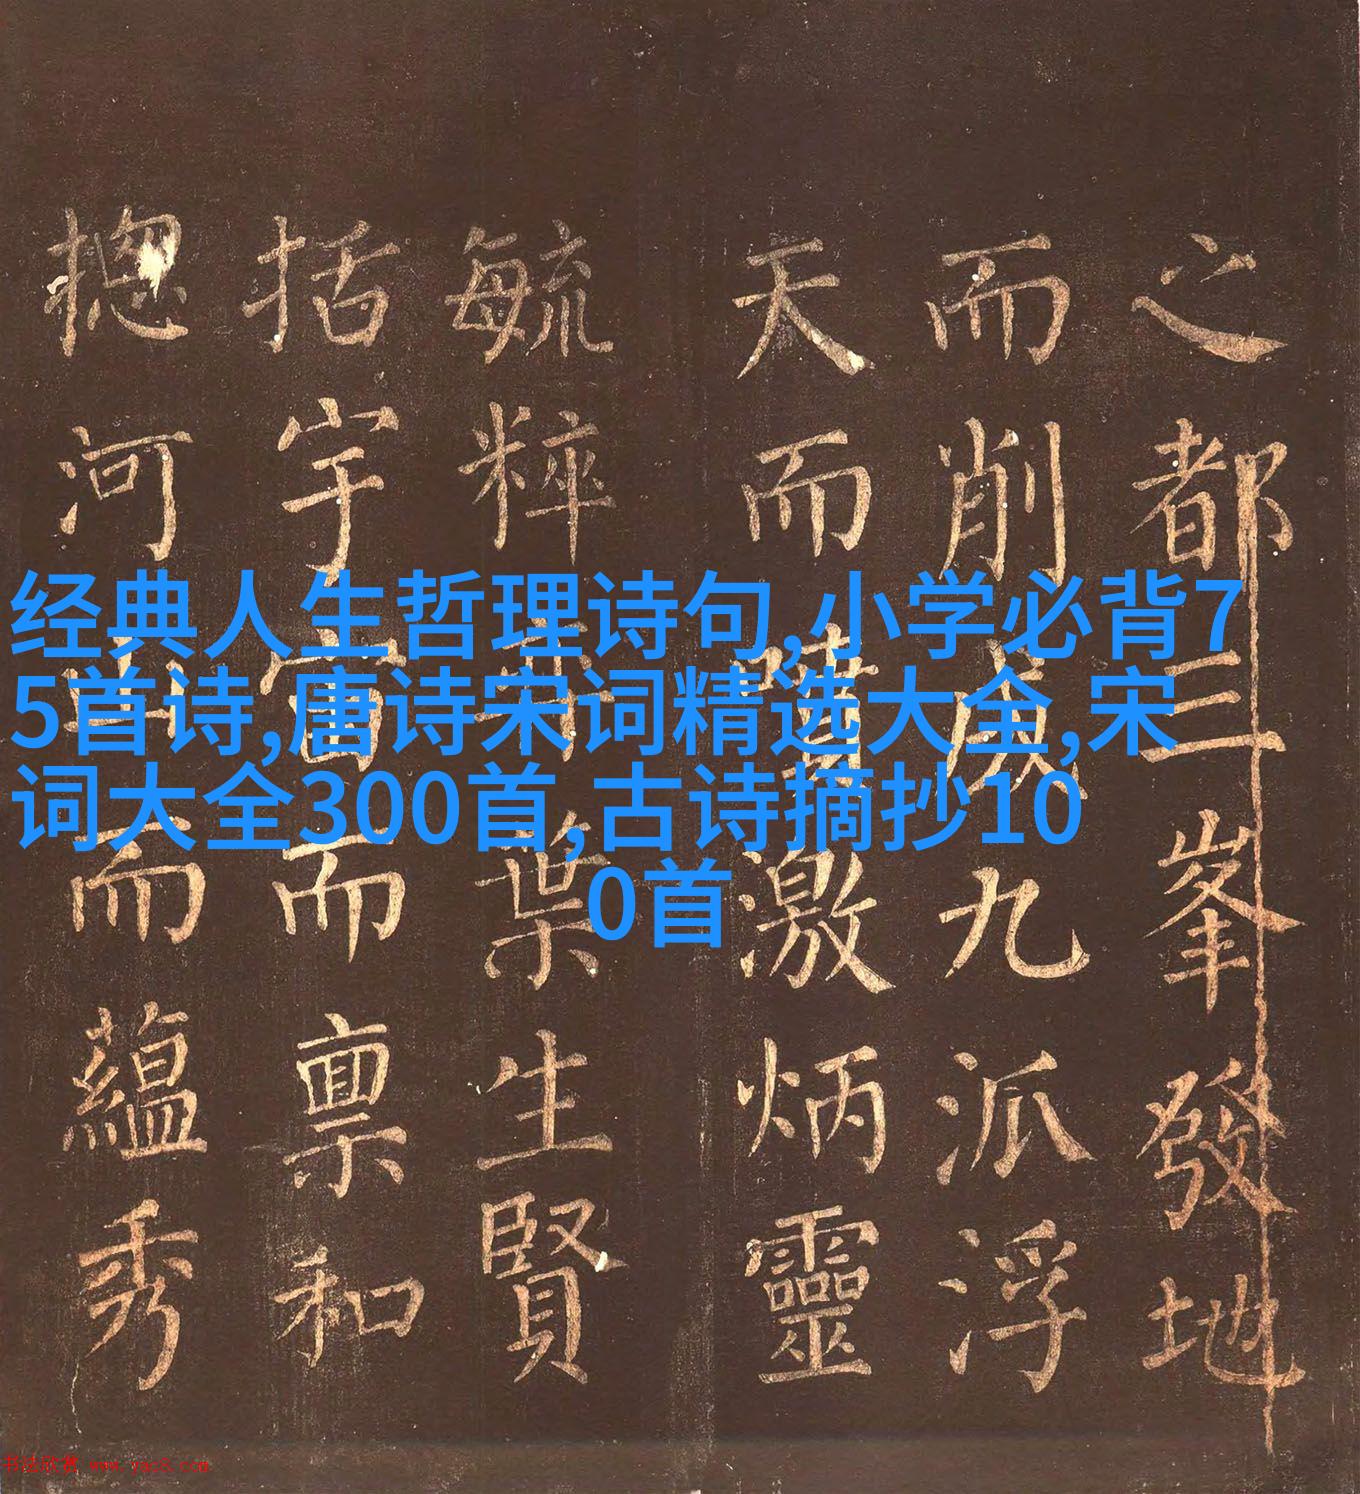 之都三峯發地
而削成九派浮
天而噴激炳靈
毓粹弈葉生賢
括宇宙而稟和
揔河山而蘊秀
经典人生哲理诗句,小学必背7
5首诗,唐诗宋词精选大全,宋
词大全300首,古诗摘抄10
0首
书法欣赏 www.yac8.com